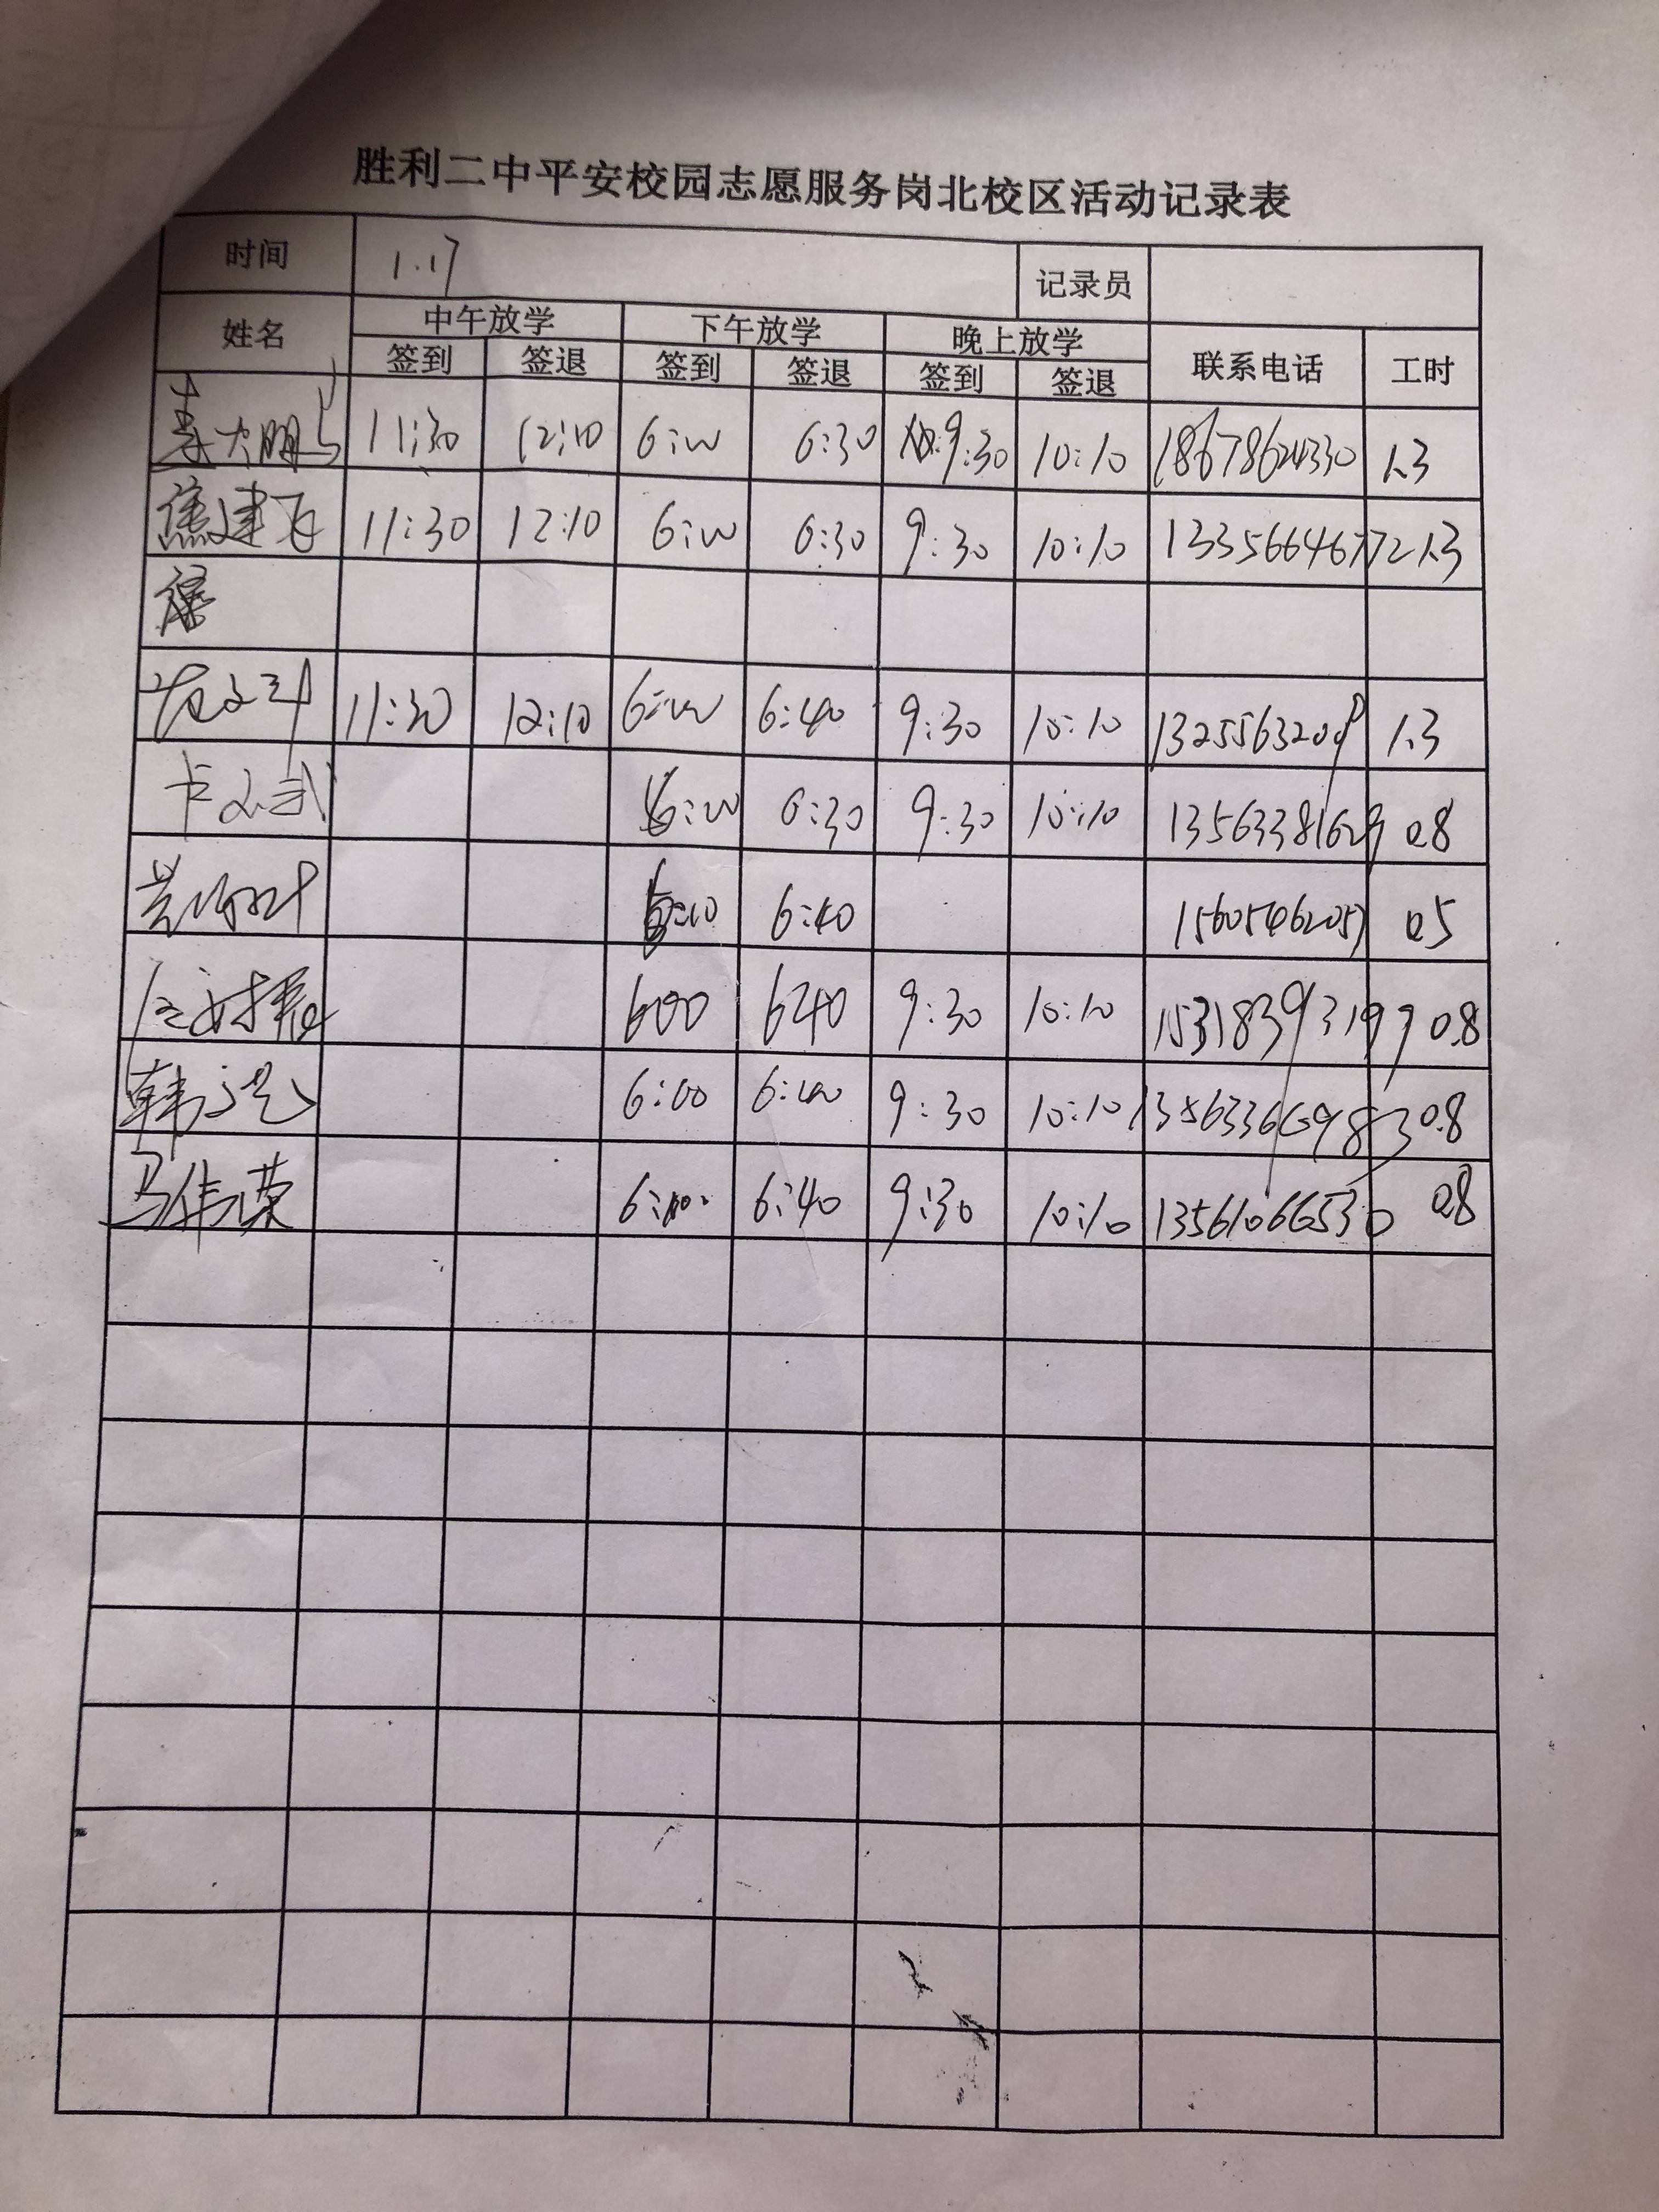 胜利二中平安校园志愿服务岗北校区活动记录表
时间 1.17 记录员
姓名 中午放学 下午放学 晚上放学 联系电话 工时
签到 签退 签到 签退 签到 签退
大鹏 11:30 12:10 6:00 6:30 9:30 10:10 18678624330 1.3
焦建飞 11:30 12:10 6:00 6:30 9:30 10:10 13356646772 1.3
11:30 12:10 6:00 6:40 9:30 10:10 1.3
6:00 6:30 9:30 10:10 13563381629 0.8
6:40 0.5
600 640 9:30 10:10 15318393199 0.8
韩 6:00 6:40 9:30 10:10 0.8
马伟英 6:00 6:40 9:30 10:10 13561066530 0.8